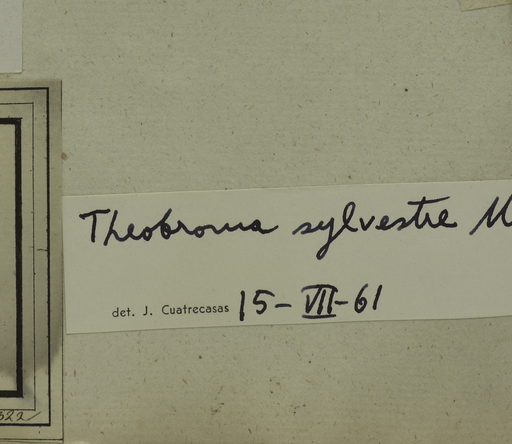 Theobroma sylvestre M
det. J. Cuatrecasas 15-VII-61
322